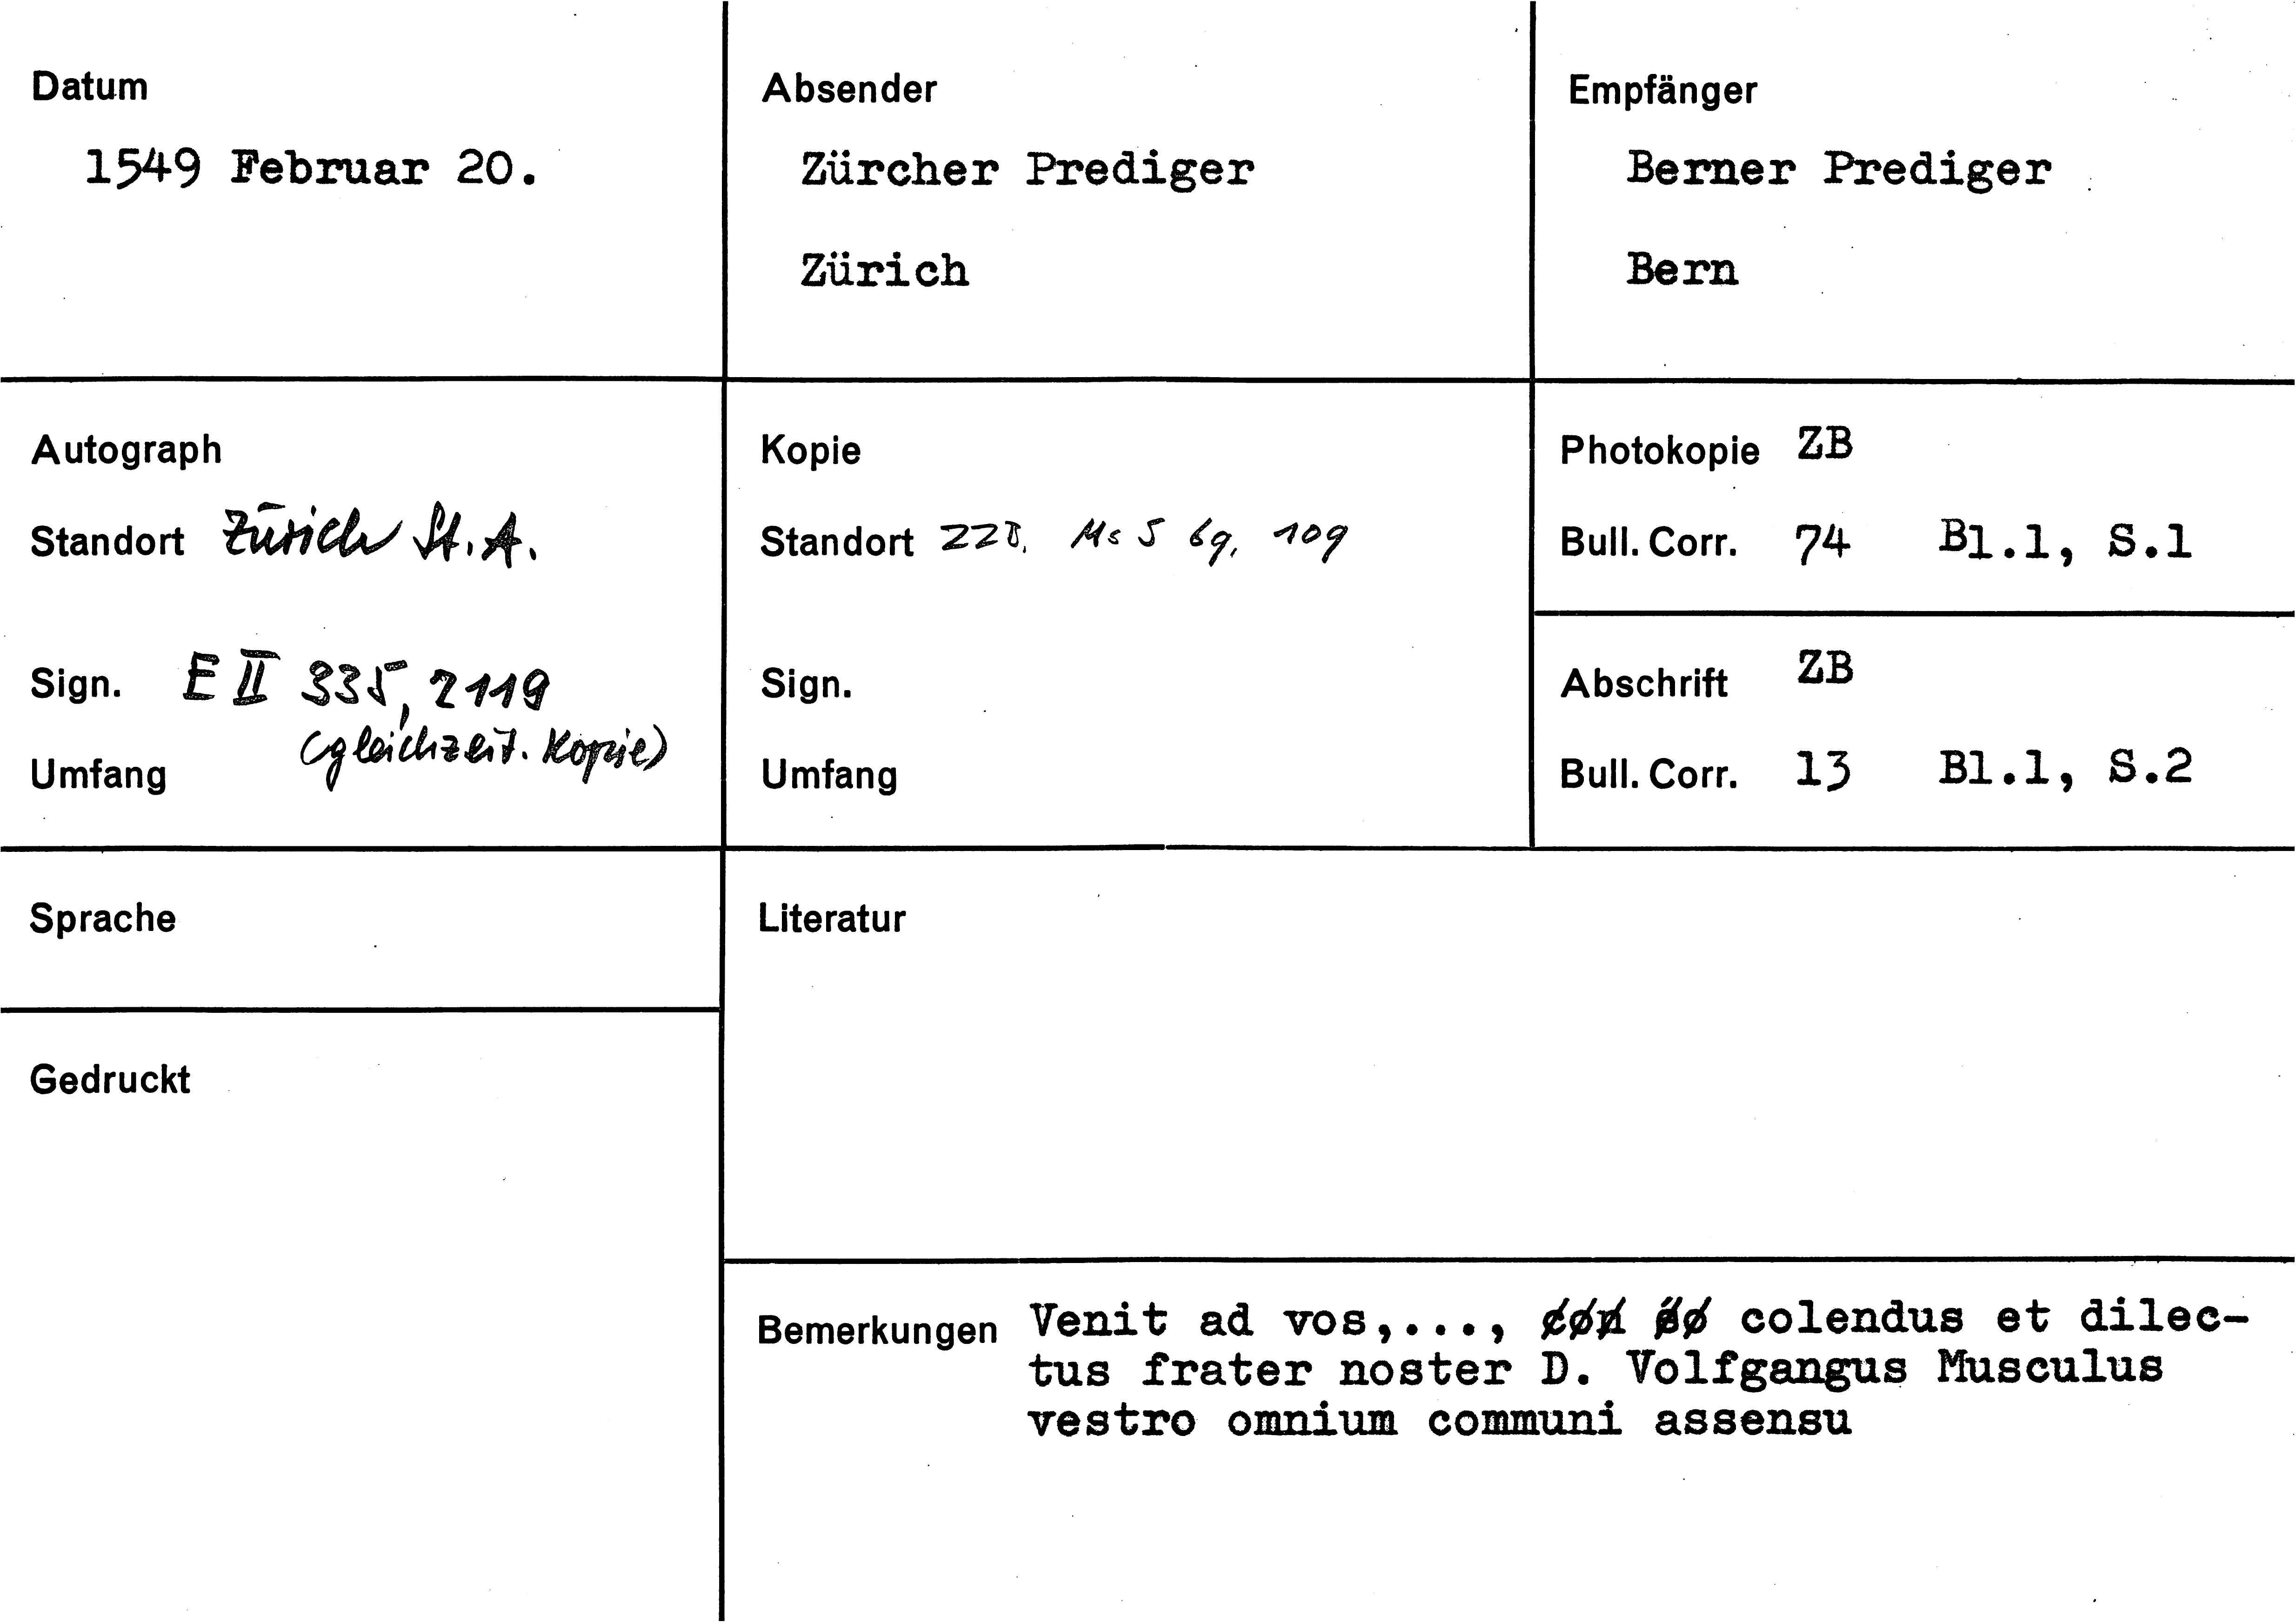 Datum
1549 Februar 20.
Absender
Zürcher Prediger
Zürich
Empfänger
Berner Prediger
Bern
Autograph
Standort Zürich St. A.
Sign. E II 335, 2119
(gleichzeit. Kopie)
Umfang
Kopie
Standort ZZB, Ms S 69, 109
Sign.
Umfang
Photokopie ZB
Bull. Corr. 74 Bl.1, S.1
Abschrift ZB
Bull. Corr. 13 Bl.1, S.2
Sprache
Gedruckt
Literatur
Bemerkungen Venit ad vos,..., colendus et dilec-
tus frater noster D. Volfgangus Musculus
vestro omnium communi assensu